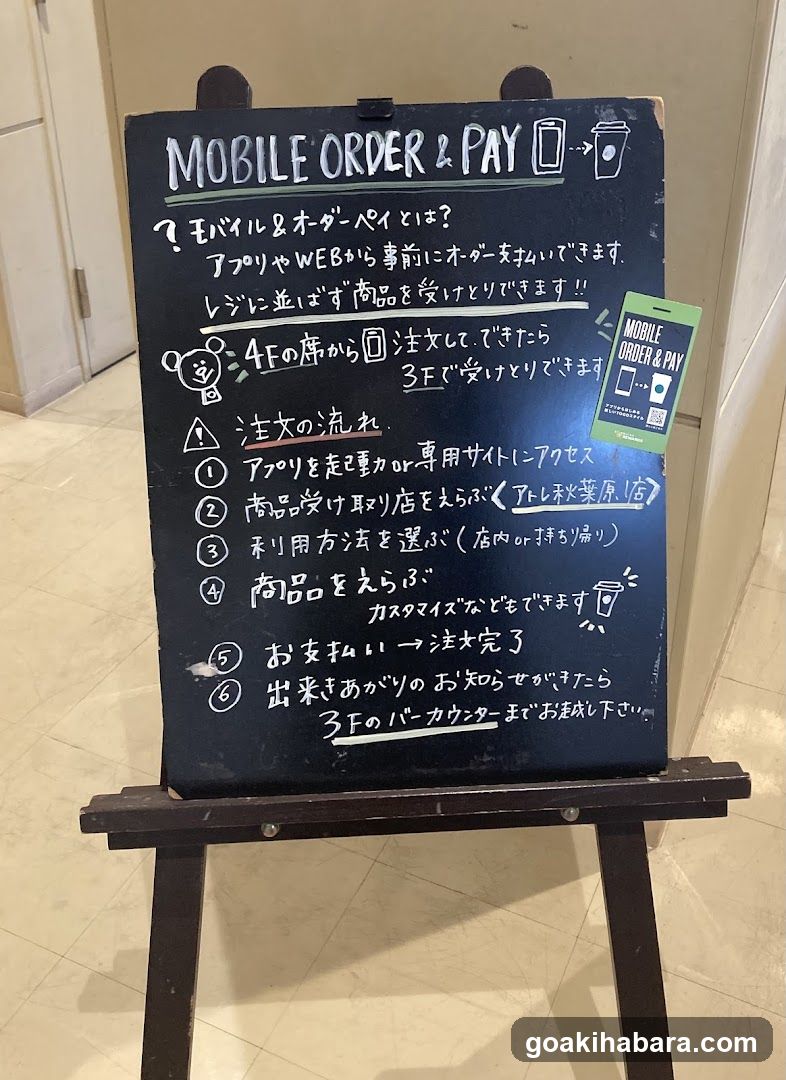 MOBILE ORDER & PAY
? モバイル&オーダーペイとは?
アプリやWEBから事前にオーダー支払いできます.
レジに並ばず商品を受けとりできます!!
4Fの席から 注文して.できたら
3Fで受けとりできます
MOBILE
ORDER & PAY
REWARDS
! 注文の流れ.
① アプリを起動or専用サイトにアクセス
② 商品受け取り店をえらぶ〈アトレ秋葉原1店〉
③ 利用方法を選ぶ(店内or持ち帰り)
④ 商品をえらぶ
カスタマイズなどもできます
⑤ お支払い→注文完了
⑥ 出来きあがりのお知らせがきたら
3Fのバーカウンターまでお越し下さい.
goakihabara.com